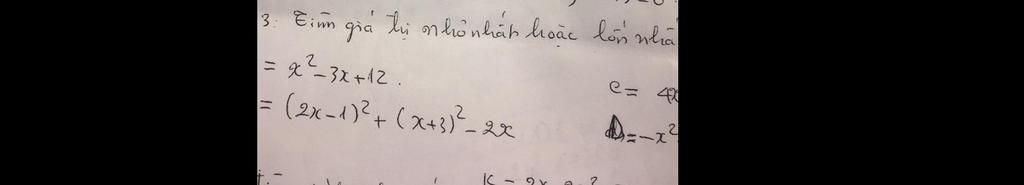 3. Tìm giá trị nhỏ nhất hoặc lớn nhấ
= x² - 3x + 12.
= (2x - 1)² + (x + 3)² - 2x
C = 4x
D = -x²